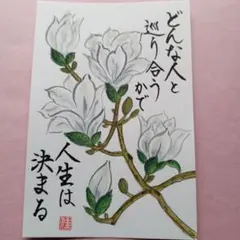 どんな人と
巡り合う
かで
人生は
決まる